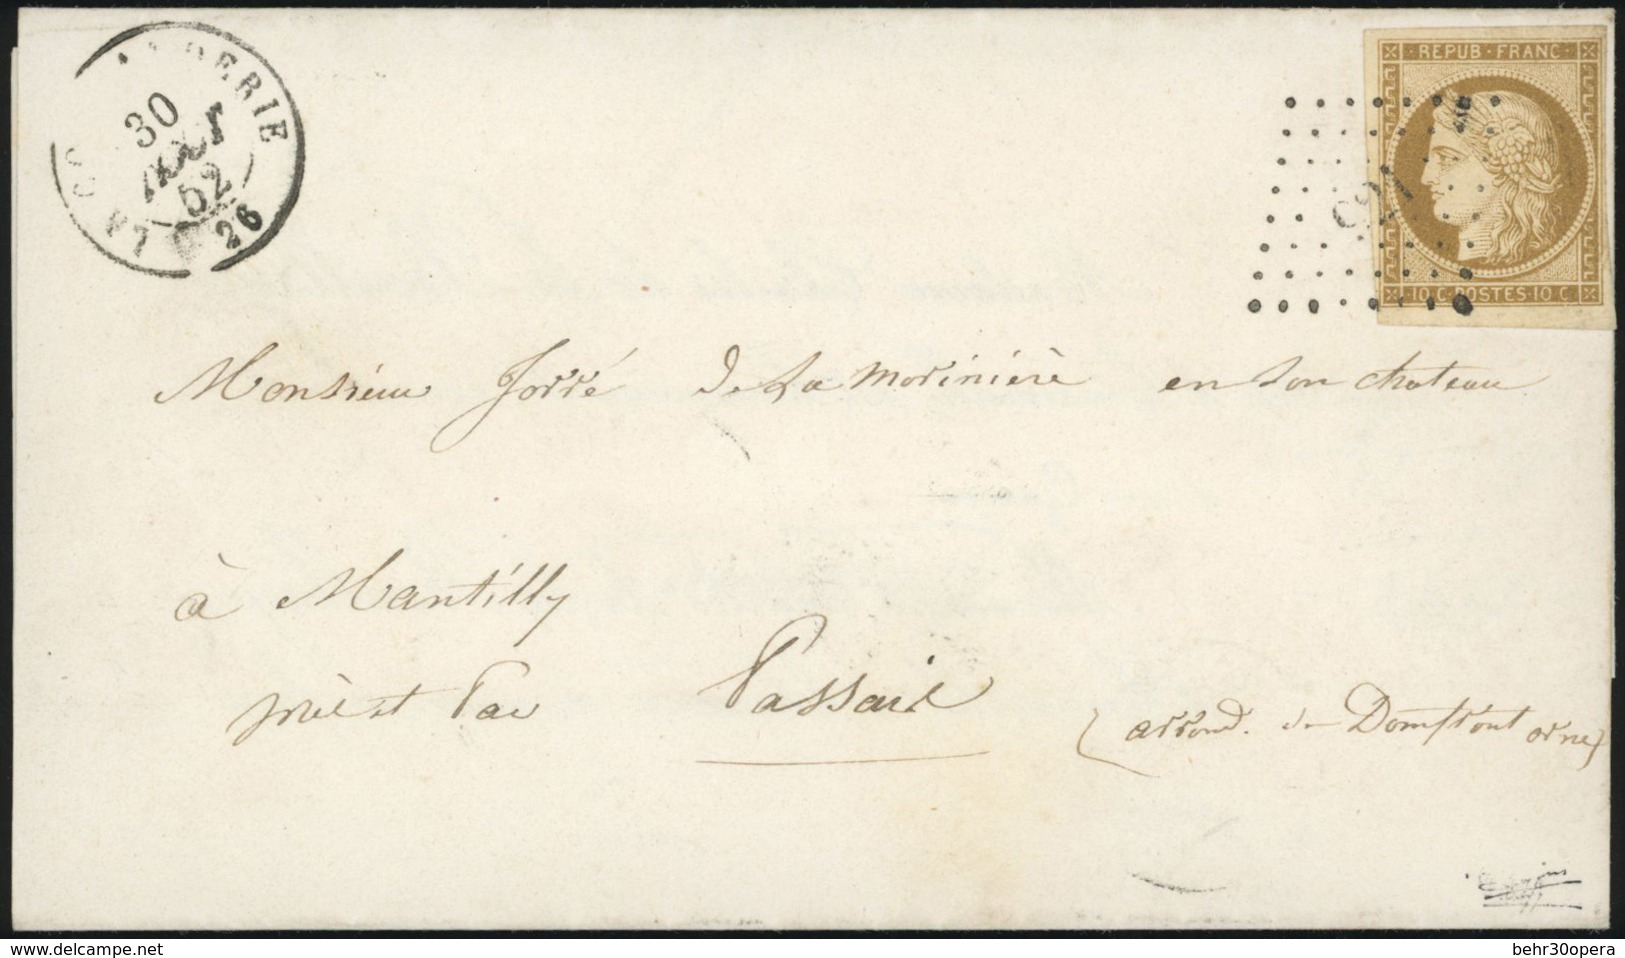 LA CO ERIE 26
30
52
REPUB·FRANC
10·C·POSTES·10·C
Monsieur Jorré de La Morinière en son chateau
à Mantilly
près et Par Passais (arrond. de Domfront orne)
delcampe.com
behr30opera